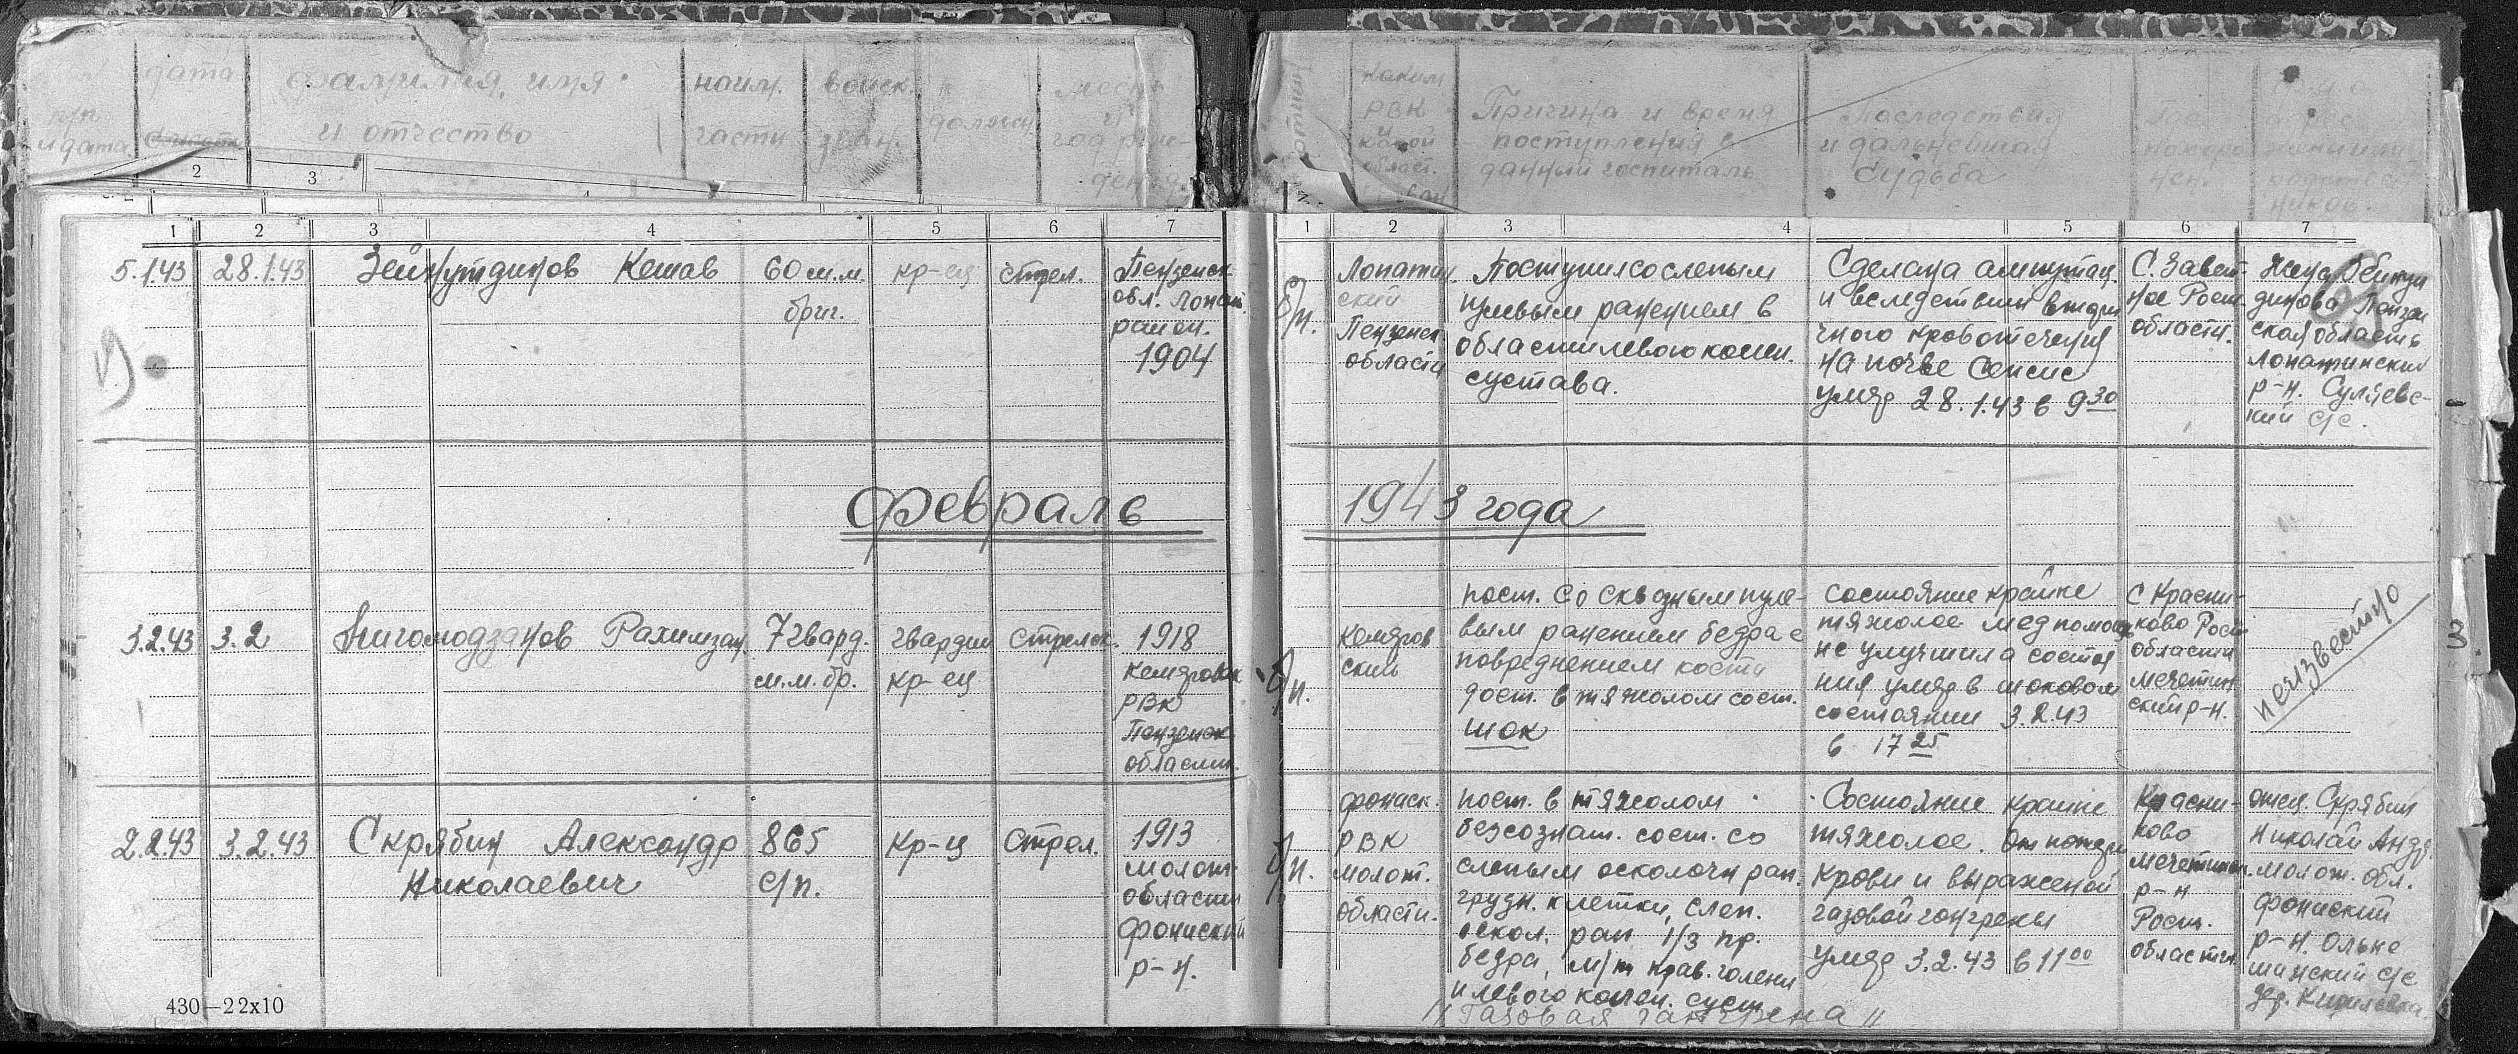 дата
фамилия, имя
и отчество
наим.
части
воиск.
зван.
должн.
год
РВК
Причина и время
поступления в
данный госпиталь
Последствия
и дальнейшая
судьба
2 3
1 2 3 4 5 6 7
1 2 3 4 5 6 7
5.1.43 28.1.43 Зейнутдинов Кешав 60 м.м. бриг. кр-ец стрел.
Пензенск.
обл. Лопат.
район.
1904
б/п.
Лопатин
ский
Пензенск
области
Поступил со слепым
пулевым ранением в
области левого колен.
сустава.
Сделана ампутац.
и вследствии втори
чного кровотечения
на почве сепсис
умер 28.1.43 в 9 30
С. Завет-
ное Рост.
области.
жена
динова Пензен
ская область
Лопатинский
р-н. Суляевс-
кий с/с.
Февраль 1943 года
3.2.43 3.2 Нигомодзанов Рахимзан. 7 гвард. м.м. бр. гвардии кр-ец стрелок.
1918
Кемеровск
РВК
Пензенск
области.
б/п.
Кемеров
ский
пост. со сквозным пуле-
вым ранением бедра с
повреднением кости
дост. в тяжолом сост.
шок
состояние крайне
тяжолое медпомощь
не улучшила состоя
ния умер в шоковом
состоянии 3.2.43
в 17 25
С Красни-
ково Рост
области
мечетин
ский р-н.
неизвестно
2.2.43 3.2.43 Скрябин Александр Николаевич 865 с/п. кр-ц стрел.
1913
молот.
области
фокиский
р-н.
б/п.
РВК
молот.
области.
пост. в тяжолом
безсознат. сост. со
слепым осколочн ран.
грудн. клетки, слеп.
оскол. ран 1/3 пр.
бедра, м/т прав. голени
и левого колен. суст.
"Газовая гангрена"
Состояние крайне
тяжолое. От потери
крови и выраженой
газовой гангрены
умер 3.2.43 в 11 00
Красни-
ково
мечетинск.
р-н
Рост.
области.
отец. Скрябин
Николай Андр.
молот. обл.
фокиский
р-н.
с/с
дер.
3
430—22x10